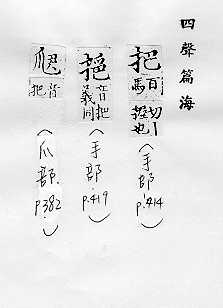 四聲篇海
把 百馬切握也 (手部 p.414)
音把義同 (手部 p.419)
音把 (爪部 p.382)